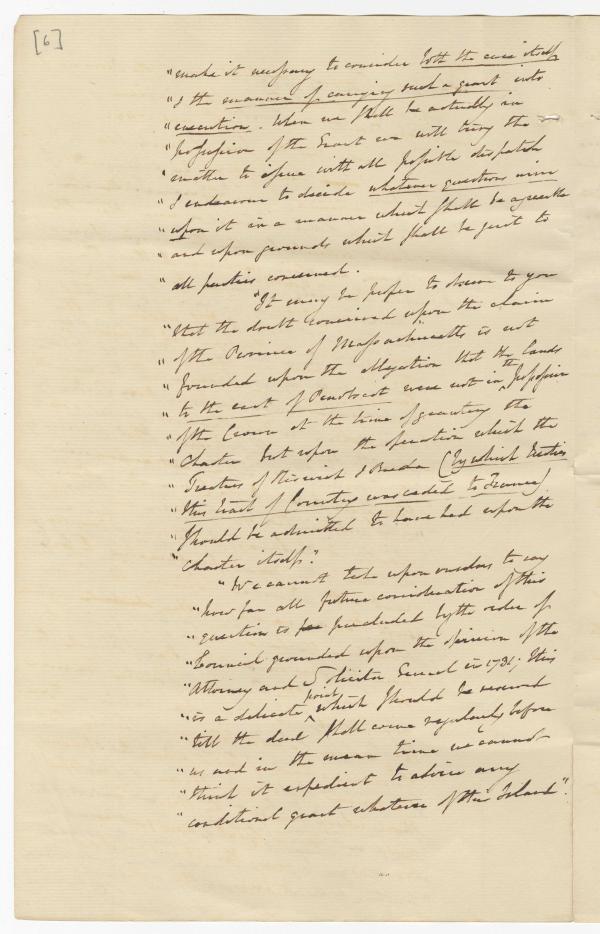 [6]
"make it necessary to consider both the case itself
"& the manner of carrying such a grant into
"execution. When we shall be actually in
"possession of the Grant we will bring the
"matter to issue with all possible dispatch
"& endeavour to decide whatever questions arise
"upon it in a manner which shall be agreeable
"and upon grounds which shall be just to
"all parties concerned.
"It may be proper to observe to you
"that the doubt conceived upon the claim
"of the Province of Massachusetts is not
"founded upon the allegation that the lands
"to the east of Penobscot were not in the possession
"of the Crown at the time of granting the
"Charter but upon the operation which the
"Treaties of Riswick & Breda (by which Treaties
"this tract of Country was ceded to France)
"should be admitted to have had upon the
"Charter itself."
"We cannot take upon ourselves to say
"how far all future consideration of this
"question is precluded by the order of
"Council grounded upon the opinion of the
"Attorney and Solicitor General in 1731; this
"is a delicate point which should be reserved
"till the deed shall come regularly before
"us and in the mean time we cannot
"think it expedient to advise any
"conditional grant whatever of this Island".